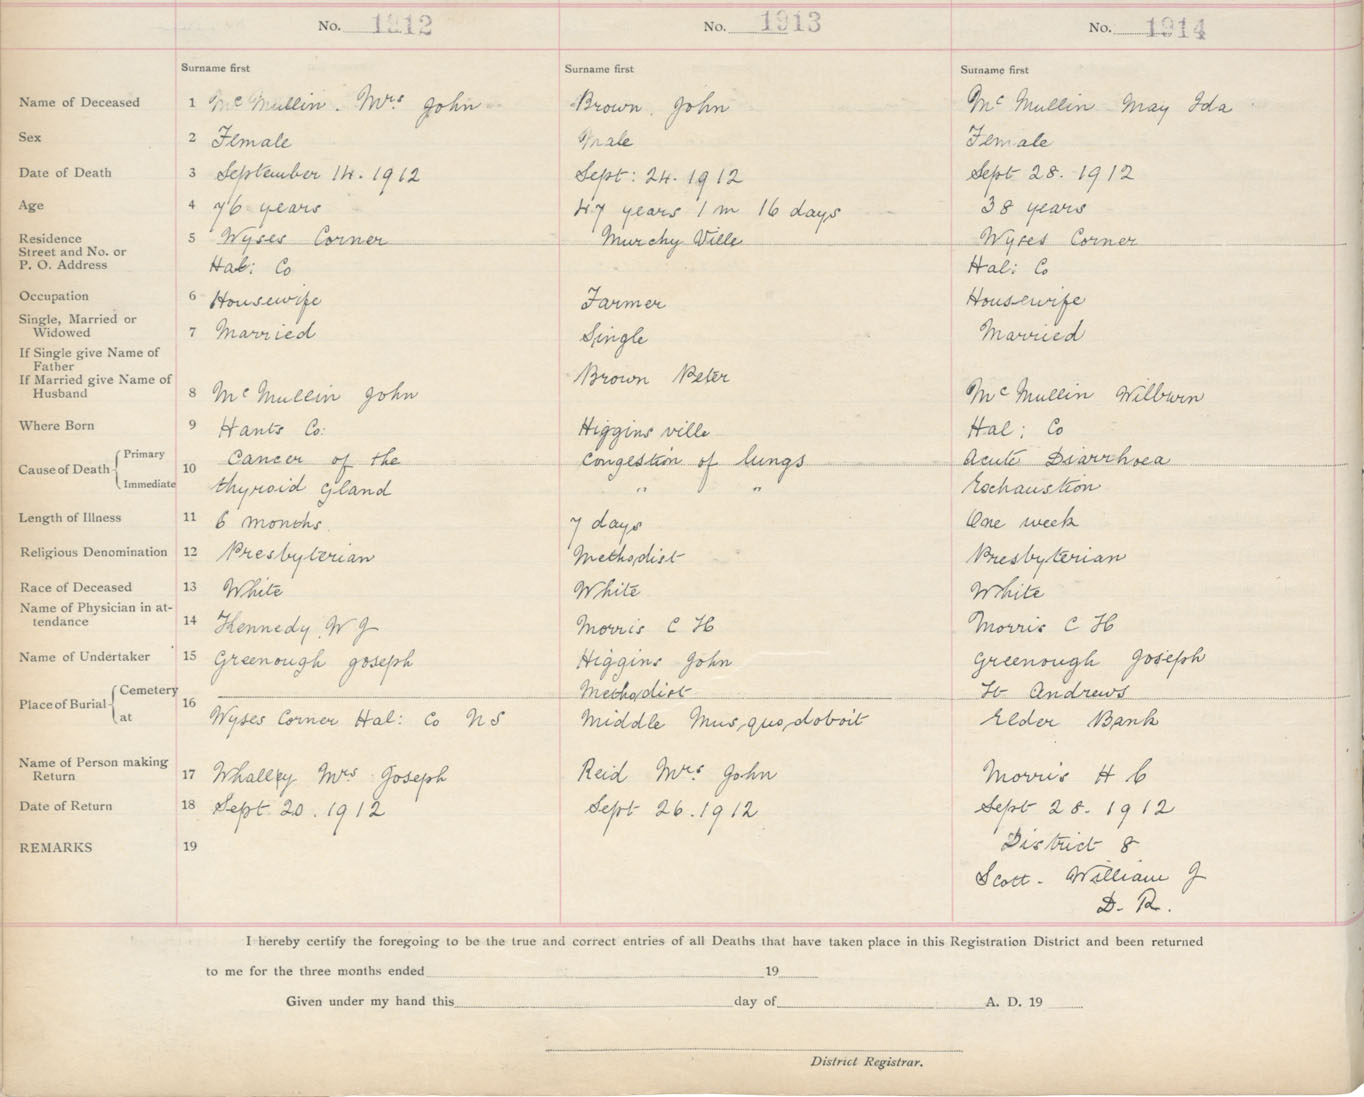 No. 1912 No. 1913 No. 1914
Surname first Surname first Surname first
Name of Deceased 1 Mc Mullin. Mrs John Brown. John Mc Mullin May Ida
Sex 2 Female Male Female
Date of Death 3 September 14. 1912 Sept: 24. 1912 Sept 28. 1912
Age 4 76 years 47 years 1 m 16 days 38 years
Residence 5 Wyses Corner Murchy Ville Wyses Corner
Street and No. or
P. O. Address Hal: Co Hal: Co
Occupation 6 Housewife Farmer Housewife
Single, Married or
Widowed 7 Married Single Married
If Single give Name of
Father
If Married give Name of Brown Peter
Husband 8 Mc Mullin John Mc Mullin Wilburn
Where Born 9 Hants Co: Higgins ville Hal: Co
Cause of Death Primary 10 Cancer of the congestion of lungs Acute Diarrhoea
Immediate thyroid Gland " " Exhaustion
Length of Illness 11 6 months. 7 days One week
Religious Denomination 12 Presbyterian Methodist Presbyterian
Race of Deceased 13 White White White
Name of Physician in at-
tendance 14 Kennedy W J Morris C H Morris C H
Name of Undertaker 15 Greenough Joseph Higgins John Greenough Joseph
Place of Burial Cemetery 16 Methodist St Andrews
at Wyses Corner Hal: Co N S Middle Musquodoboit Elder Bank
Name of Person making
Return 17 Whalley Mrs Joseph Reid Mrs. John Morris H C
Date of Return 18 Sept 20. 1912 Sept 26. 1912 Sept 28. 1912
REMARKS 19 District 8
Scott - William J
D. R.
I hereby certify the foregoing to be the true and correct entries of all Deaths that have taken place in this Registration District and been returned
to me for the three months ended 19
Given under my hand this day of A. D. 19
District Registrar.